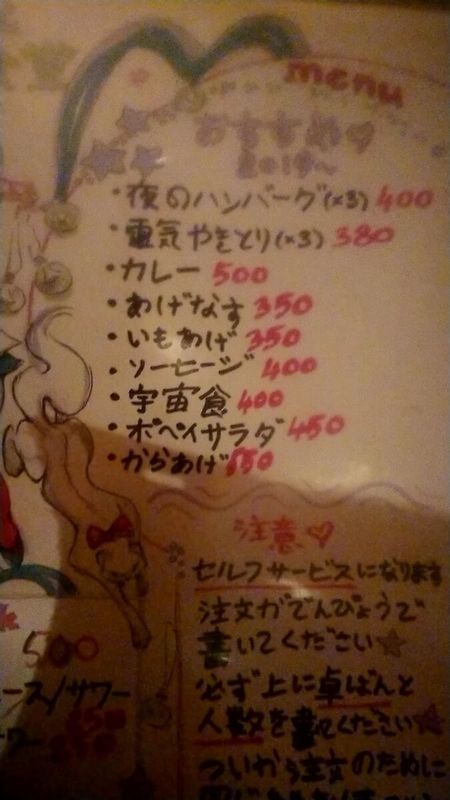 menu
おすすめ♡
2019〜
・夜のハンバーグ(×3) 400
・電気やきとり(×3) 380
・カレー 500
・あげなす 350
・いもあげ 350
・ソーセージ 400
・宇宙食 400
・ポペイサラダ 450
・からあげ 650
注意♡
セルフサービスになります
注文がでんぴょうで
書いてください☆
必ず上に卓ばんと
人数を書いてください☆
ついかう注文のために
500
ース/サワー